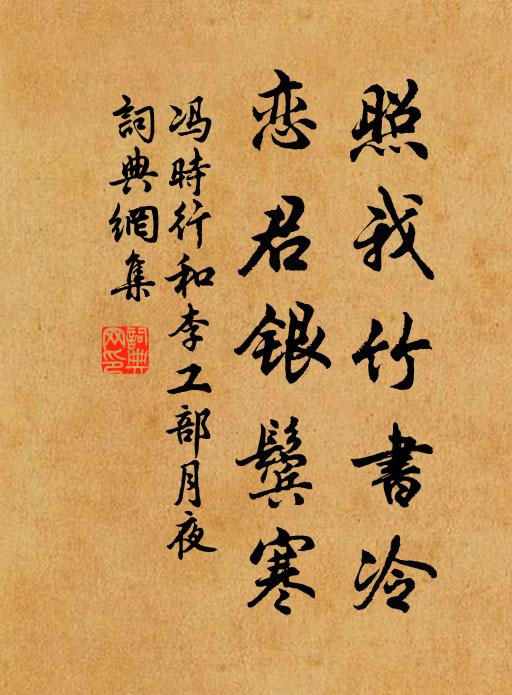 照我竹書冷
恋君银鬓寒
冯時行和李工部月夜
詞典網集
詞典網印